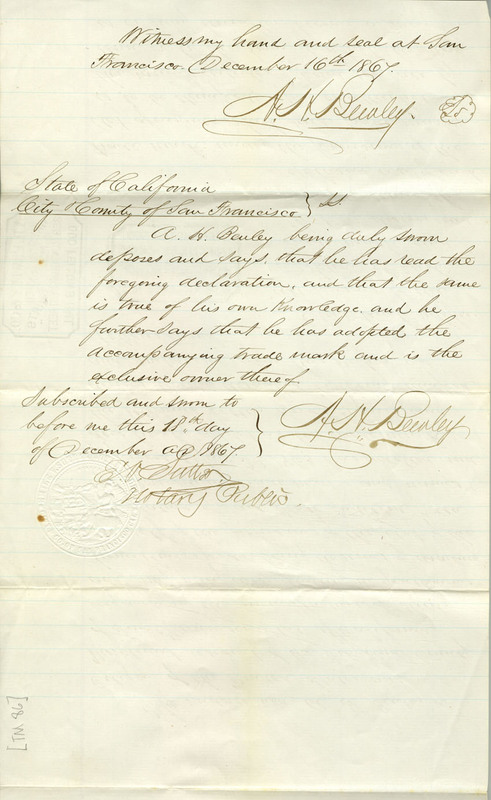 Witness my hand and seal at San
Francisco December 16th 1867.
A. H. Bewley. L.S.
State of California
City & County of San Francisco } ss.
A. H. Bewley being duly sworn
deposes and says, that he has read the
foregoing declaration, and that the same
is true of his own knowledge. and he
further says that he has adopted the
accompanying trade mark and is the
exclusive owner thereof
Subscribed and sworn to
before me this 18th day
of December AD 1867. } A. H. Bewley
Notary Public.
[TM 86]